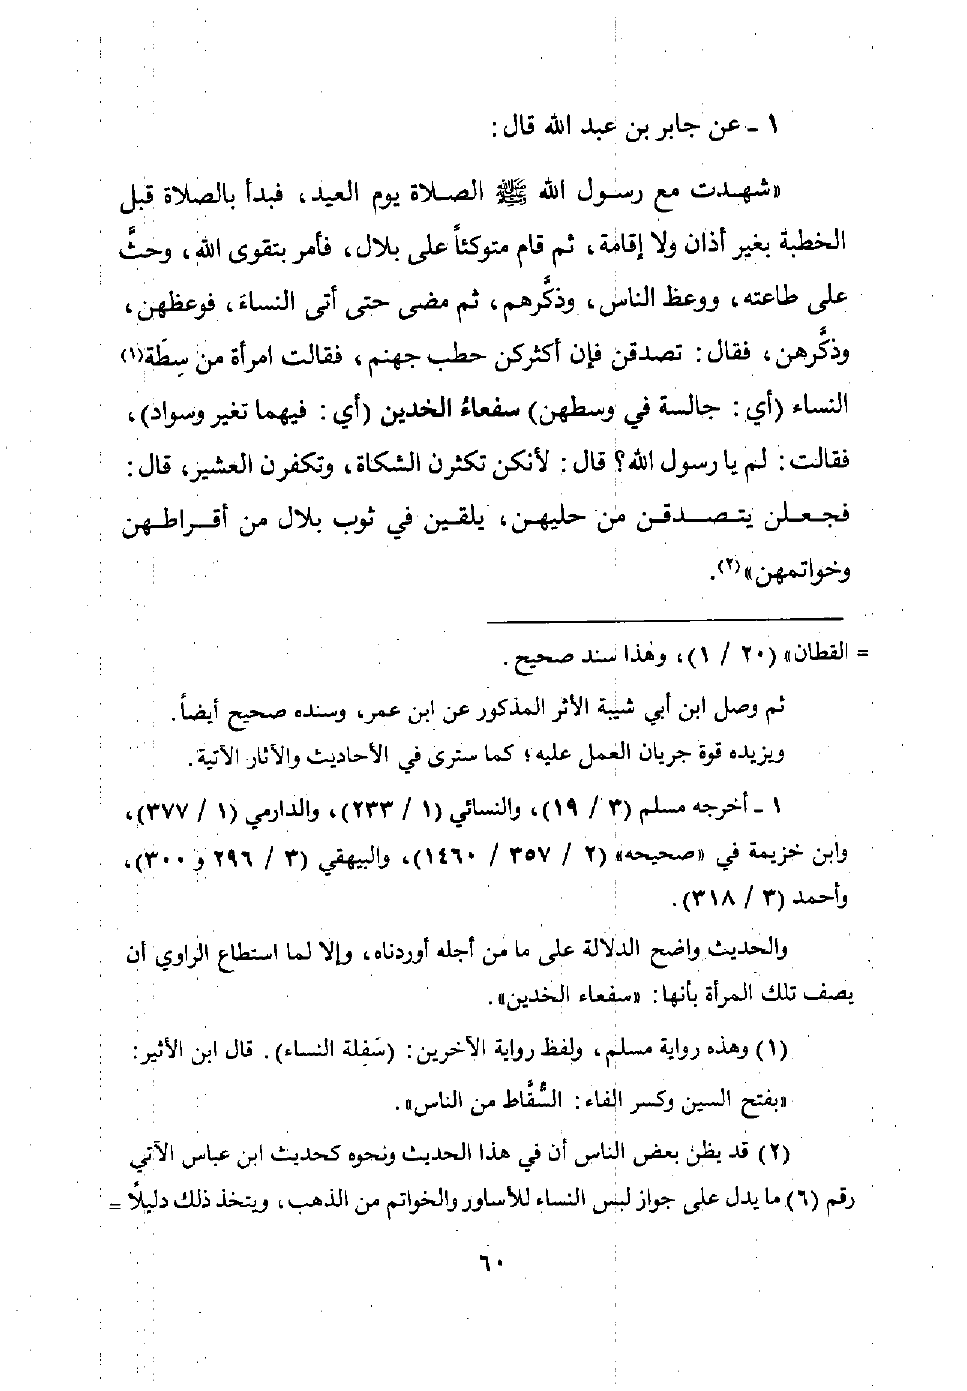 ١ - عن جابر بن عبد الله قال:
«شهدت مع رسول الله ﷺ الصلاة يوم العيد، فبدأ بالصلاة قبل
الخطبة بغير أذان ولا إقامة، ثم قام متوكئاً على بلال، فأمر بتقوى الله، وحثَّ
على طاعته، ووعظ الناس، وذكَّرهم، ثم مضى حتى أتى النساءَ، فوعظهن،
وذكَّرهن، فقال: تصدقن فإن أكثركن حطب جهنم، فقالت امرأة من سِطَة(١)
النساء (أي: جالسة في وسطهن) سفعاءُ الخدين (أي: فيهما تغير وسواد)،
فقالت: لم يا رسول الله؟ قال: لأنكن تكثرن الشكاة، وتكفرن العشير، قال:
فجعلن يتصدقن من حليهن، يلقين في ثوب بلال من أقراطهن
وخواتمهن»(٢).
= القطان» (٢٠ / ١)، وهذا سند صحيح.
ثم وصل ابن أبي شيبة الأثر المذكور عن ابن عمر، وسنده صحيح أيضاً.
ويزيده قوة جريان العمل عليه؛ كما سترى في الأحاديث والآثار الآتية.
١ - أخرجه مسلم (٣ / ١٩)، والنسائي (١ / ٢٣٣)، والدارمي (١ / ٣٧٧)،
وابن خزيمة في «صحيحه» (٢ / ٣٥٧ / ١٤٦٠)، والبيهقي (٣ / ٢٩٦ و ٣٠٠)،
وأحمد (٣ / ٣١٨).
والحديث واضح الدلالة على ما من أجله أوردناه، وإلا لما استطاع الراوي أن
يصف تلك المرأة بأنها: «سفعاء الخدين».
(١) وهذه رواية مسلم، ولفظ رواية الآخرين: (سَفِلة النساء). قال ابن الأثير:
«بفتح السين وكسر الفاء: السُّقَّاط من الناس».
(٢) قد يظن بعض الناس أن في هذا الحديث ونحوه كحديث ابن عباس الآتي
رقم (٦) ما يدل على جواز لبس النساء للأساور والخواتم من الذهب، ويتخذ ذلك دليلاً =
٦٠